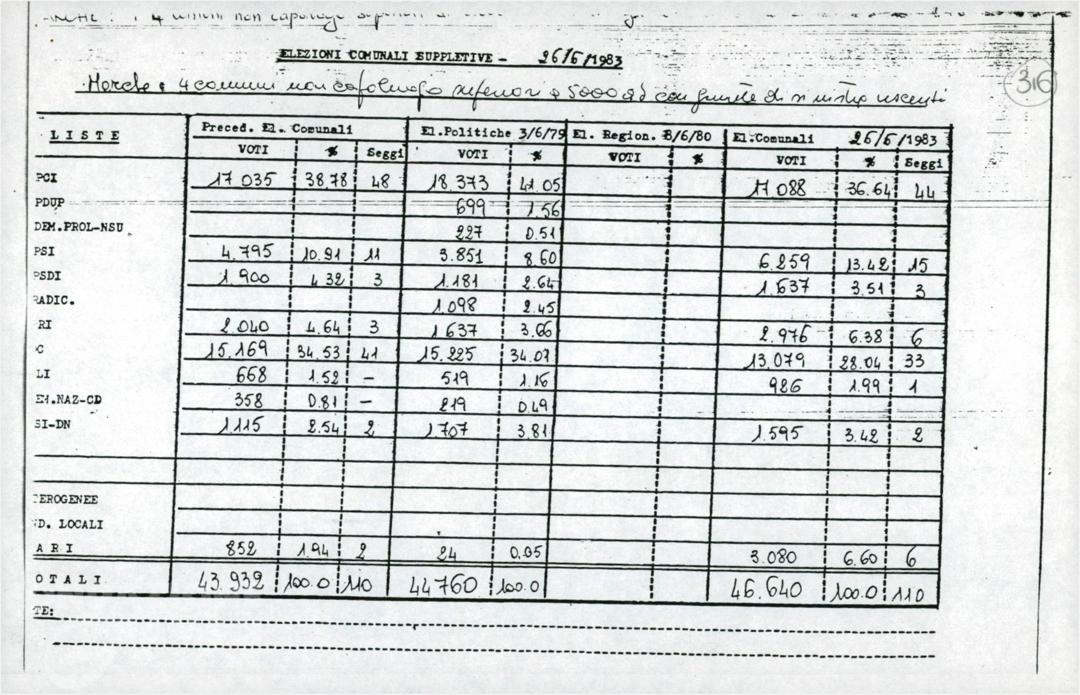 ELEZIONI COMUNALI SUPPLETIVE - 26/6/1983
Marche: 4 comuni non capoluogo superiori a 5000 ab con giunte di sinistra uscenti
316
LISTE Preced. El. Comunali El.Politiche 3/6/79 El. Region. 8/6/80 El.Comunali 26/6/1983
VOTI % Seggi VOTI % VOTI % VOTI % Seggi
PCI 17 035 38,78 48 18.373 41.05 17 088 36.64 44
PDUP 699 1.56
DEM.PROL-NSU 227 0.51
PSI 4.795 10.91 11 3.851 8.60 6.259 13.42 15
PSDI 1.900 4.32 3 1.181 2.64 1.637 3.51 3
RADIC. 1.098 2.45
RI 2.040 4.64 3 1637 3.66 2.976 6.38 6
C 15.169 34.53 41 15.225 34.01 13.079 28.04 33
LI 668 1.52 - 519 1.16 926 1.99 1
EM.NAZ-CD 358 0.81 - 219 0.49
SI-DN 1.115 2.54 2 1.707 3.81 1.595 3.42 2
EROGENEE
ND. LOCALI
A R I 852 1.94 2 24 0.05 3.080 6.60 6
O T A L I 43.932 100.0 110 44760 100.0 46.640 100.0 110
TE: